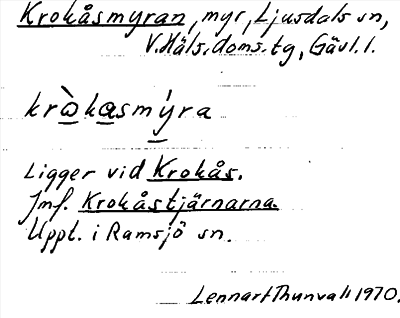 Krokåsmyran, myr, Ljusdals sn,
V. Häls. doms. tg, Gävl. l.
krò̲ka̲smý̲ra
Ligger vid Krokås.
Jmf. Krokåstjärnarna.
Uppt. i Ramsjö sn.
Lennart Thunvall 1970.